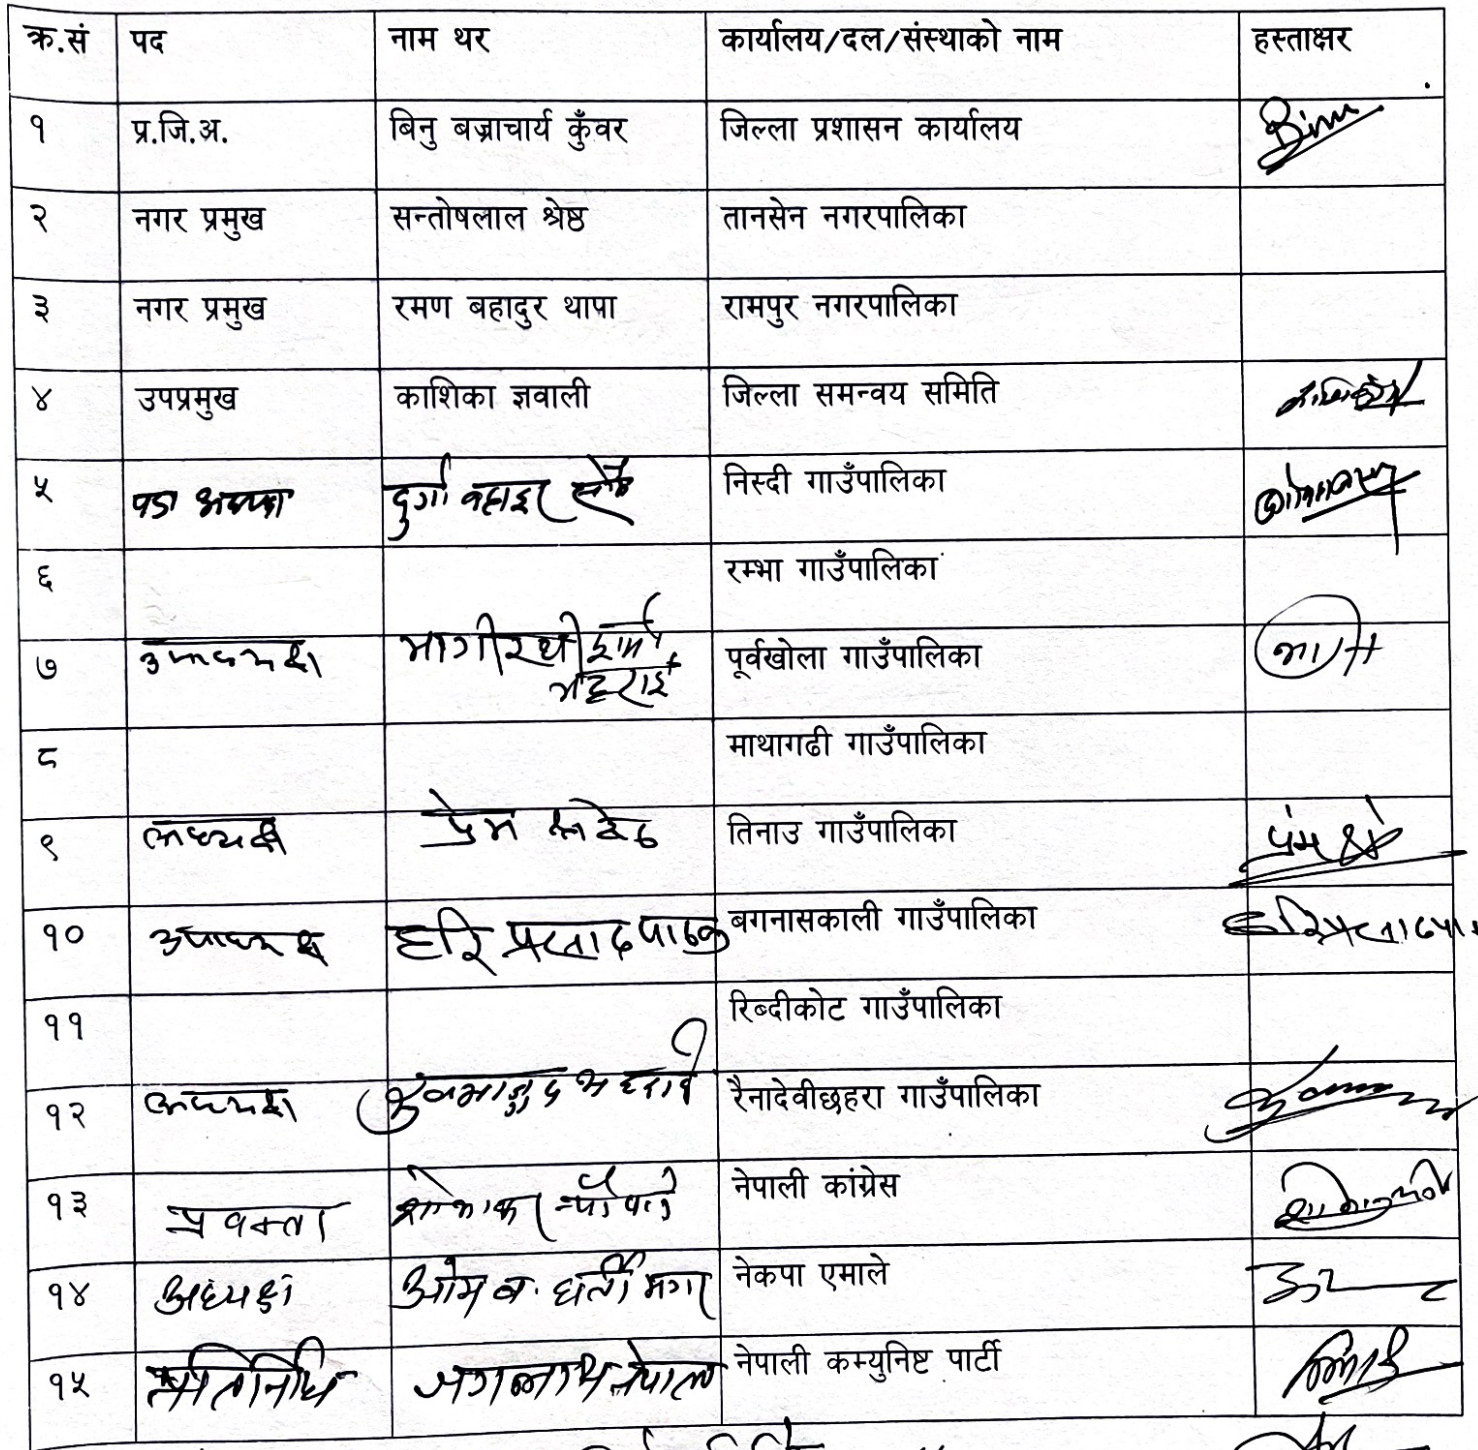 क्र.सं पद नाम थर कार्यालय/दल/संस्थाको नाम हस्ताक्षर
१ प्र.जि.अ. बिनु बज्राचार्य कुँवर जिल्ला प्रशासन कार्यालय
२ नगर प्रमुख सन्तोषलाल श्रेष्ठ तानसेन नगरपालिका
३ नगर प्रमुख रमण बहादुर थापा रामपुर नगरपालिका
४ उपप्रमुख काशिका ज्ञवाली जिल्ला समन्वय समिति
५ वडा अध्यक्ष दुर्गा बहादुर निस्दी गाउँपालिका
६ रम्भा गाउँपालिका
७ उपाध्यक्ष भागीरथी शर्मा पूर्वखोला गाउँपालिका
भट्टराई
८ माथागढी गाउँपालिका
९ अध्यक्ष प्रेम श्रेष्ठ तिनाउ गाउँपालिका
१० उपाध्यक्ष हरि प्रसाद बगनासकाली गाउँपालिका हरि प्रसाद
११ रिब्दीकोट गाउँपालिका
१२ अध्यक्ष रैनादेवीछहरा गाउँपालिका
१३ प्रवक्ता नेपाली कांग्रेस
१४ अध्यक्ष ओम ब. घर्ती मगर नेकपा एमाले
१५ प्रतिनिधि जगन्नाथ नेपाल नेपाली कम्युनिष्ट पार्टी